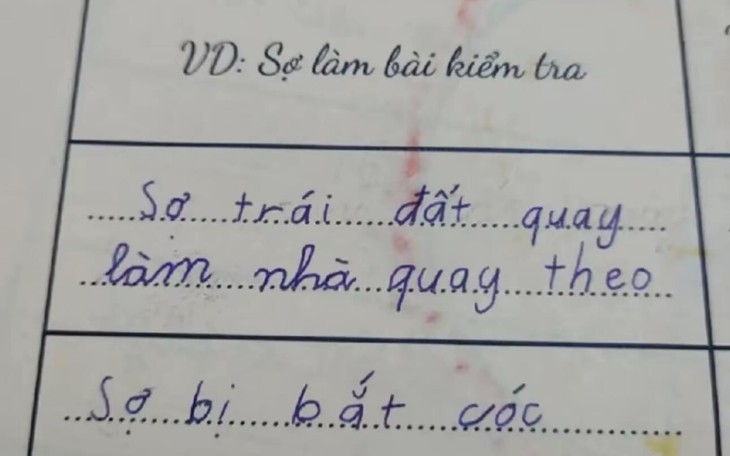 VD: Sợ làm bài kiểm tra
Sợ trái đất quay
làm nhà quay theo
Sợ bị bắt cóc